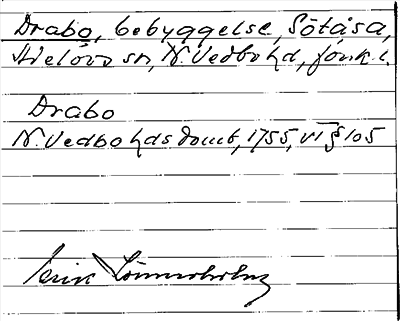 Drabo, bebyggelse, Sötåsa,
Hjelövs sn, N. Vedbo hd, Jönk. l.
Drabo
N. Vedbo hds domb, 1755, vt § 105
Erik Lönnerholm